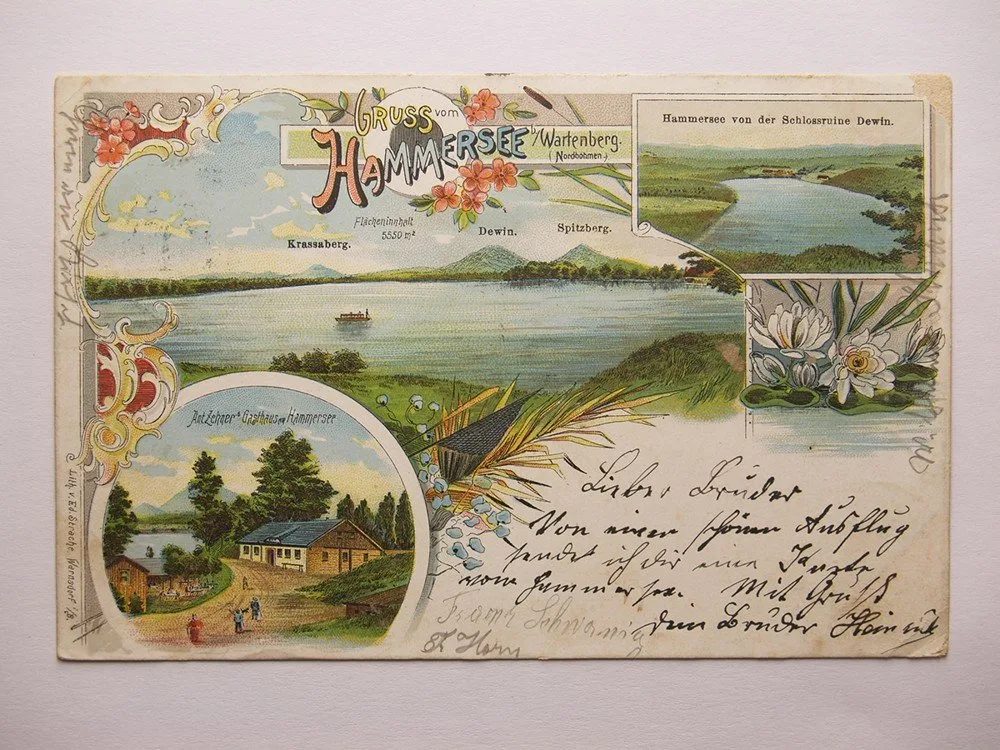 GRUSS vom
HAMMERSEE
b/Wartenberg.
(Nordböhmen.)
Hammersee von der Schlossruine Dewin.
Flächeninnhalt
5550 m²
Krassaberg.
Dewin.
Spitzberg.
Ant. Zehner's Gasthaus am Hammersee
© Lith. v. Ed. Strache, Warnsdorf i/B.
Lieber Bruder
Von einen schönen Ausflug
sendet ich dir eine Karte
vom Hammersee. Mit Gruß
dein Bruder Heinrich
Franz